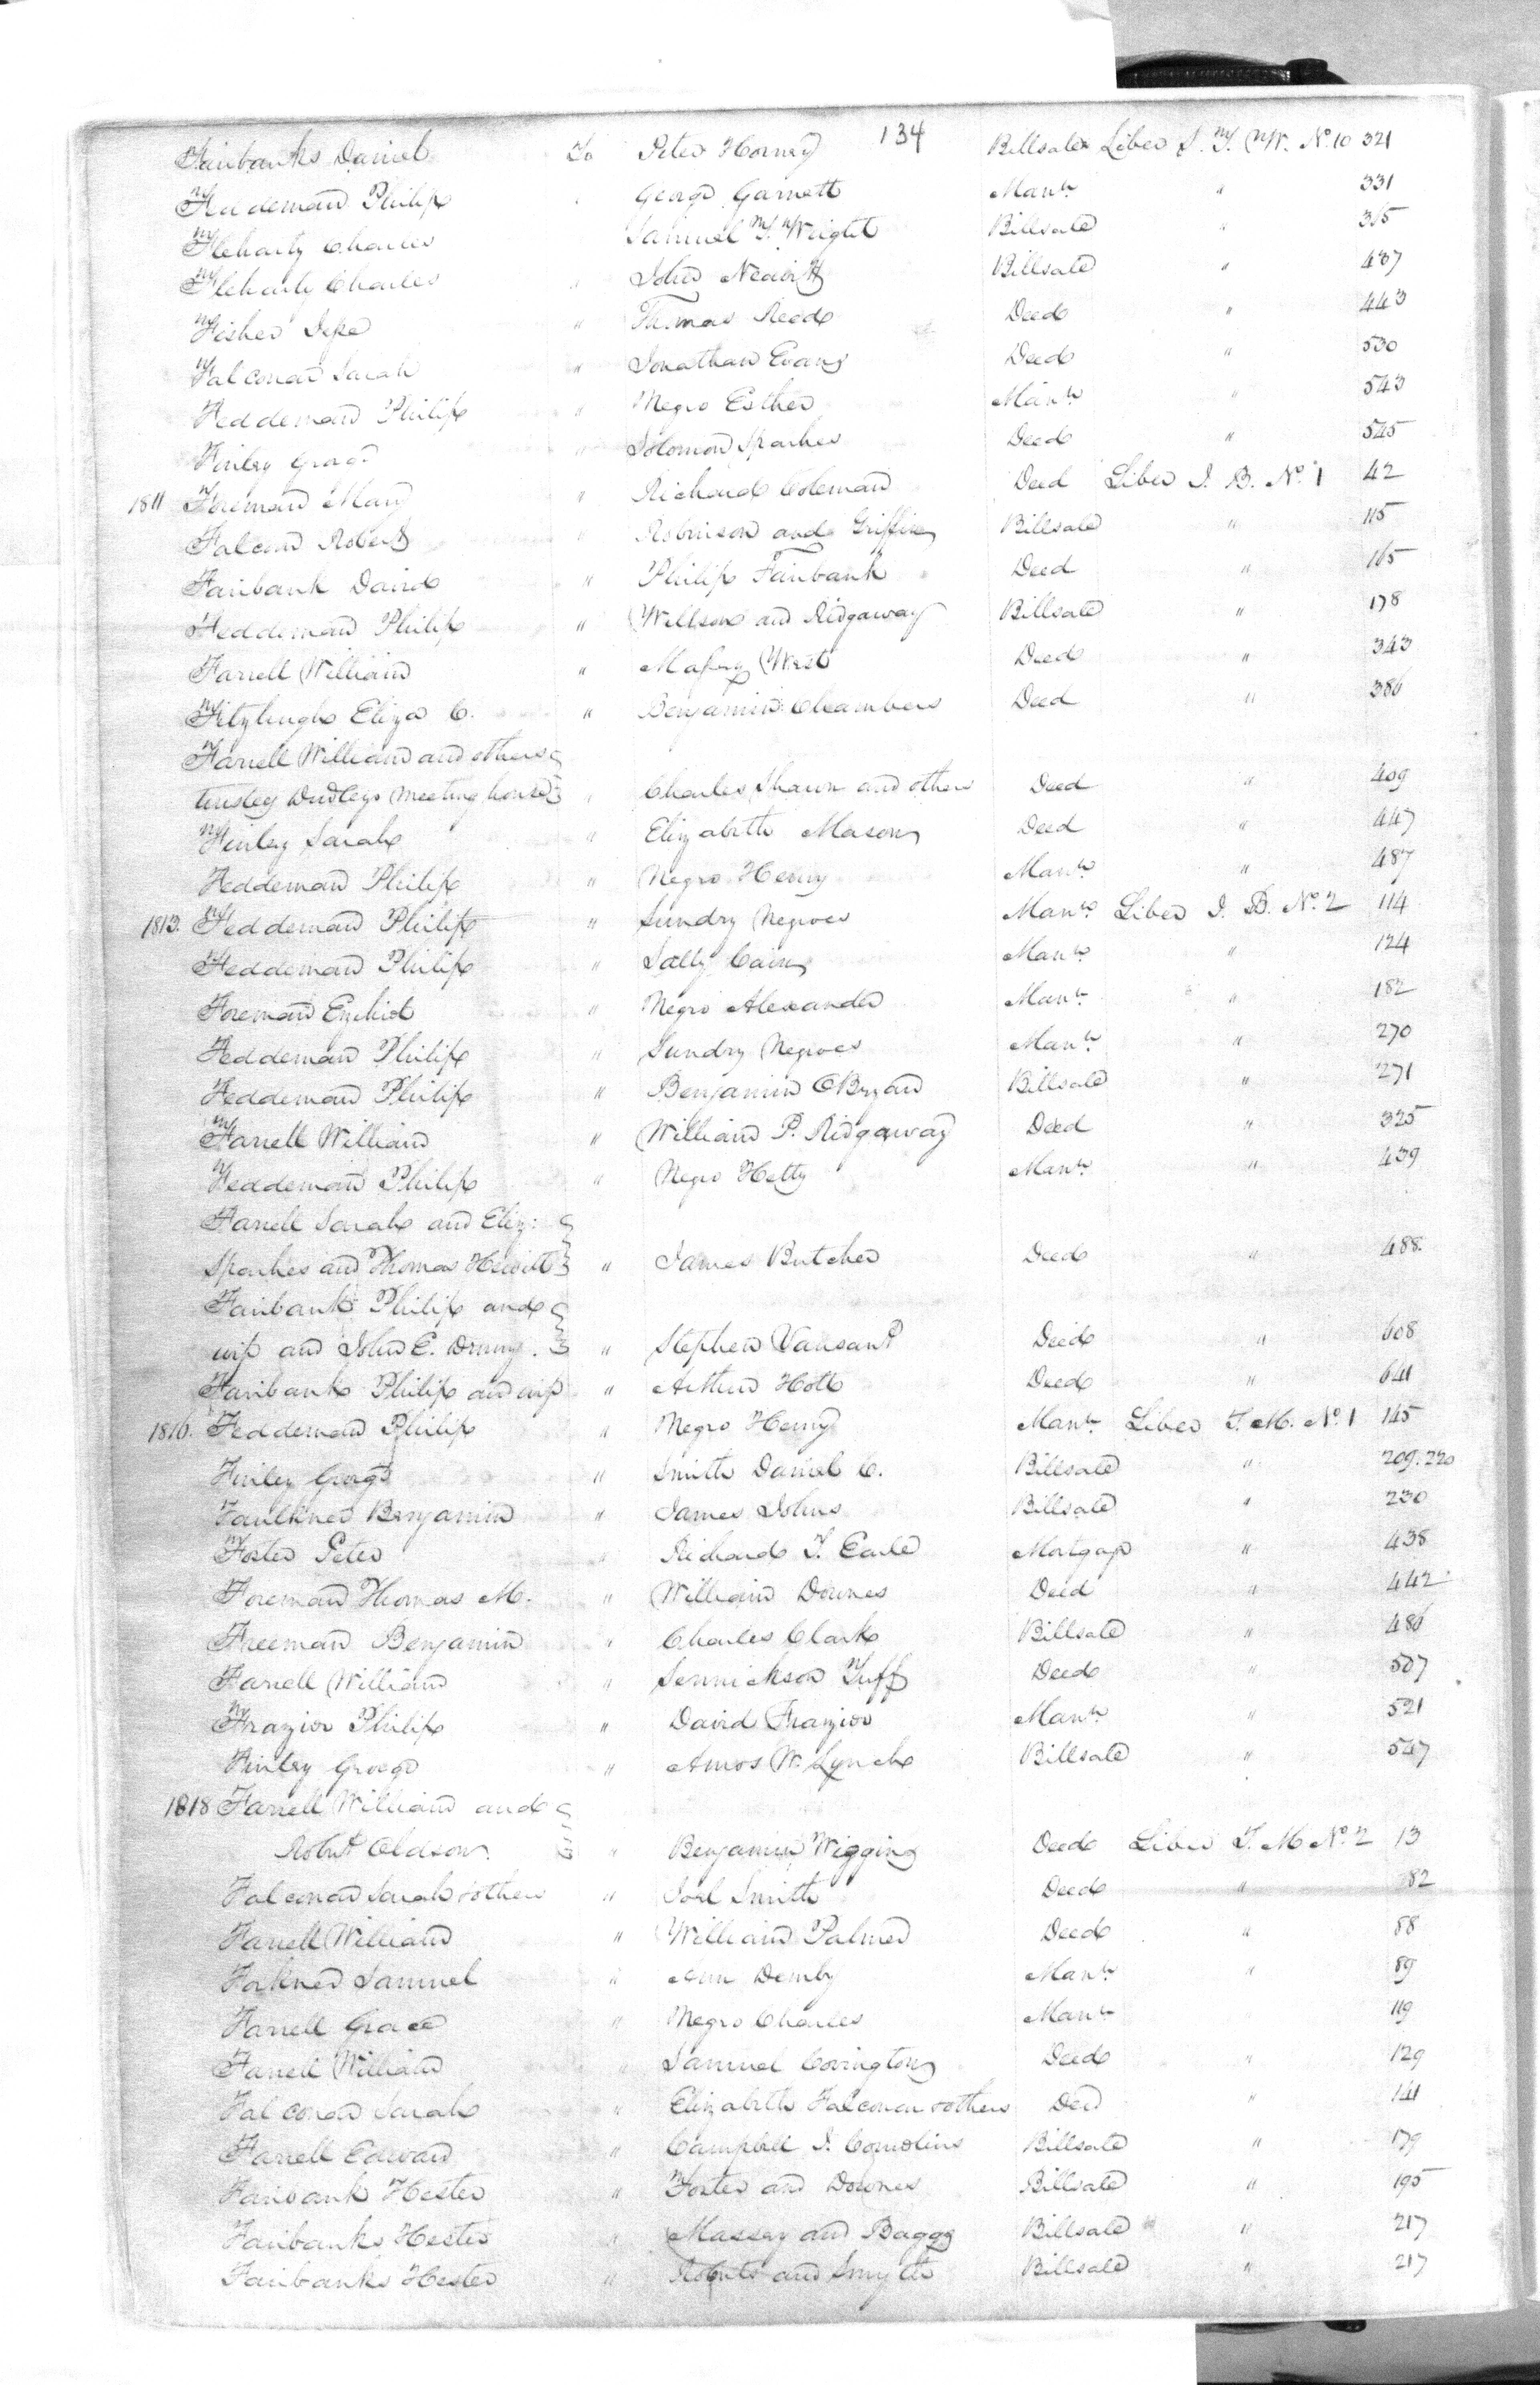 134
Fairbanks Daniel To Peter Horney Billsale Liber S. T. W. No. 10 321
Feddeman Philip George Garnett Mann 331
Fleharty Charles Samuel T. Wright Billsale 365
Fleharty Charles " John Neavitt Billsale " 437
Fisher " Thomas Reed Deed " 443
Falconar Sarah " Jonathan Evans Deed " 530
Feddeman Philip " Negro Esther Mann " 543
Finley " Solomon Sparkes Deed " 545
1811 Foreman Mary " Richard Coleman Deed Liber I. B. No. 1 42
Falconar Robert " Robinson and Griffin Billsale " 115
Fairbank David " Philip Fairbank Deed " 165
Feddeman Philip " Willson and Ridgaway Billsale " 178
Farrell William " West Deed " 343
Fitzhugh Eliza C. " Benjamin Chambers Deed " 386
Farrell William and others
Dudleys Meeting house " Charles Shawn and others Deed " 409
Finley Sarah " Elizabeth Mason Deed " 447
Feddeman Philip " Negro Henny Mann " 487
1813. Feddeman Philip " Sundry Negroes Mann Liber I. B. No. 2 114
Feddeman Philip " Sally Cain Mann " 124
Foreman Ezekiel " Negro Alexander Mann " 182
Feddeman Philip " Sundry Negroes Mann " 270
Feddeman Philip " Benjamin OBryan Billsale " 271
Farrell William " William P. Ridgaway Deed " 325
Feddeman Philip " Negro Hetty Mann " 439
Farrell Sarah and Eliz:
Sparkes and Thomas Hewitt " James Butcher Deed " 488
Fairbank Philip and
wife and John E. Denny. " Stephen Vansant Deed " 608
Fairbank Philip and wife " Arthur Holt Deed " 641
1816. Feddeman Philip " Negro Henny Mann Liber T. M. No. 1 145
Finley George " Smith Daniel C. Billsale " 209.220
Faulkner Benjamin " James Johns Billsale " 230
Foster Peter " Richard T. Earle Mortgage " 438
Foreman Thomas M. " William Downes Deed " 442
Freeman Benjamin " Charles Clark Billsale " 486
Farrell William " Sennickson Tuff Deed " 507
Frazior Philip " David Frazior Mann " 521
Finley George " Amos W. Lynch Billsale " 547
1818 Farrell William and
Robert Oldson. " Benjamin Wiggins Deed Liber T. M No. 2 13
Falconar Sarah & others " Joel Smith Deed " 82
Farrell William " William Palmer Deed " 88
Forkner Samuel " Ann Demby Mann " 89
Farrell Grace " Negro Charles Mann 119
Farrell William " Samuel Covington Deed " 129
Falconar Sarah " Elizabeth Falconar & others Deed " 141
Farrell Edward " Campbell I. Billsale " 179
Fairbank Hester " Foster and Downes Billsale " 195
Fairbanks Hester " Massey and Baggs Billsale " 217
Fairbanks Hester " Roberts and Smyth Billsale " 217